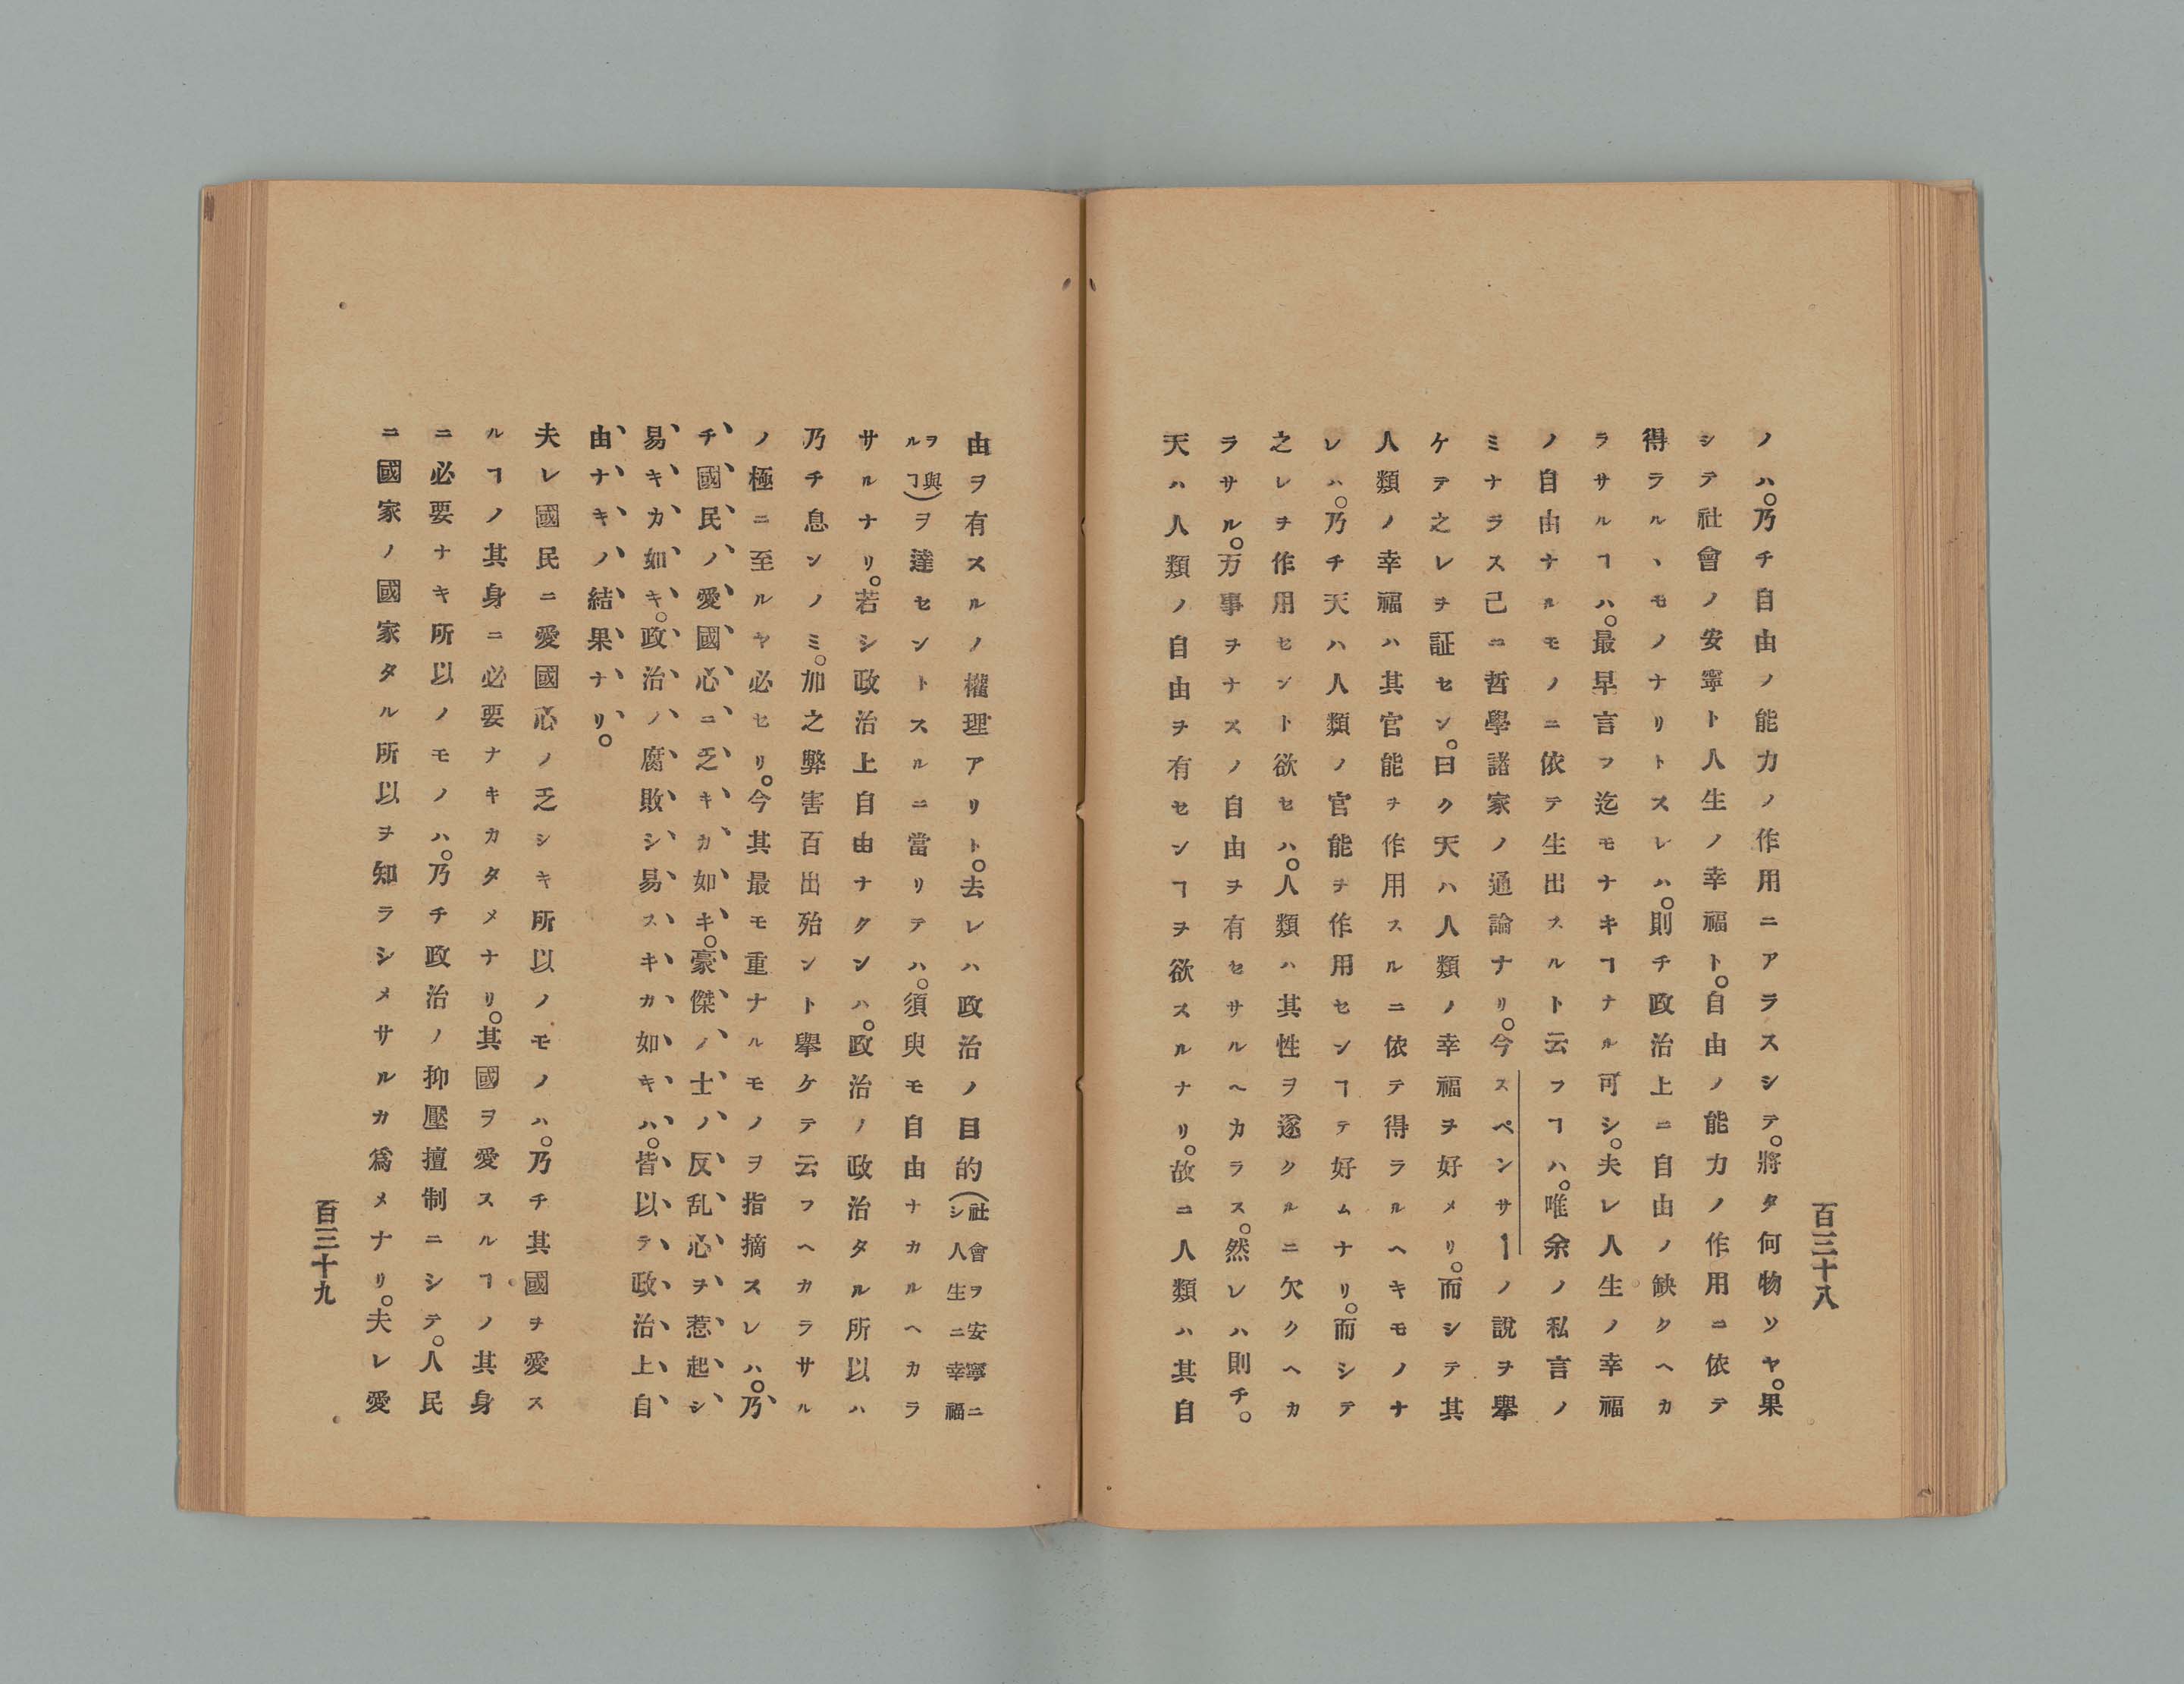 百三十八
ノハ。乃チ自由ノ能力ノ作用ニアラスシテ。將タ何物ソヤ。果
シテ社會ノ安寧ト人生ノ幸福ト。自由ノ能力ノ作用ニ依テ
得ラルヽモノナリトスレハ。則チ政治上ニ自由ノ缺クヘカ
ラサルヿハ。最早言フ迄モナキヿナル可シ。夫レ人生ノ幸福
ノ自由ナルモノニ依テ生出スルト云フヿハ。唯余ノ私言ノ
ミナラス己ニ哲學諸家ノ通論ナリ。今スペンサーノ說ヲ擧
ケテ之レヲ証セン。曰ク天ハ人類ノ幸福ヲ好メリ。而シテ其
人類ノ幸福ハ其官能ヲ作用スルニ依テ得ラルヘキモノナ
レハ。乃チ天ハ人類ノ官能ヲ作用センヿテ好ムナリ。而シテ
之レヲ作用セント欲セハ。人類ハ其性ヲ遂クルニ欠クヘカ
ラサル。万事ヲナスノ自由ヲ有セサルヘカラス。然レハ則チ。
天ハ人類ノ自由ヲ有センヿヲ欲スルナリ。故ニ人類ハ其自
由ヲ有スルノ權理アリト。去レハ政治ノ目的(社會ヲ安寧ニシ人生ニ幸福
ヲ與ルヿ)ヲ達セントスルニ當リテハ。須臾モ自由ナカルヘカラ
サルナリ。若シ政治上自由ナクンハ。政治ノ政治タル所以ハ
乃チ息ンノミ。加之弊害百出殆ント擧ケテ云フヘカラサル
ノ極ニ至ルヤ必セリ。今其最モ重ナルモノヲ指摘スレハ。乃
チ國民ノ愛國心ニ乏キカ如キ。豪傑ノ士ノ反乱心ヲ惹起シ
易キカ如キ。政治ノ腐敗シ易スキカ如キハ。皆以テ政治上自
由ナキノ結果ナリ。
夫レ國民ニ愛國心ノ乏シキ所以ノモノハ。乃チ其國ヲ愛ス
ルヿノ其身ニ必要ナキカタメナリ。其國ヲ愛スルヿノ其身
ニ必要ナキ所以ノモノハ。乃チ政治ノ抑壓擅制ニシテ。人民
ニ國家ノ國家タル所以ヲ知ラシメサルカ爲メナリ。夫レ愛
百三十九